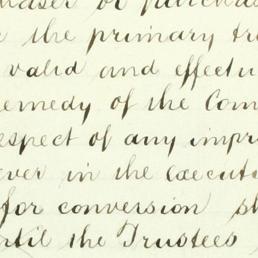 haser or purchas
the primary tr
valid and effectu
emedy of the Com
espect of any impr
ever in the executi
for conversion sh
ntil the Trustees